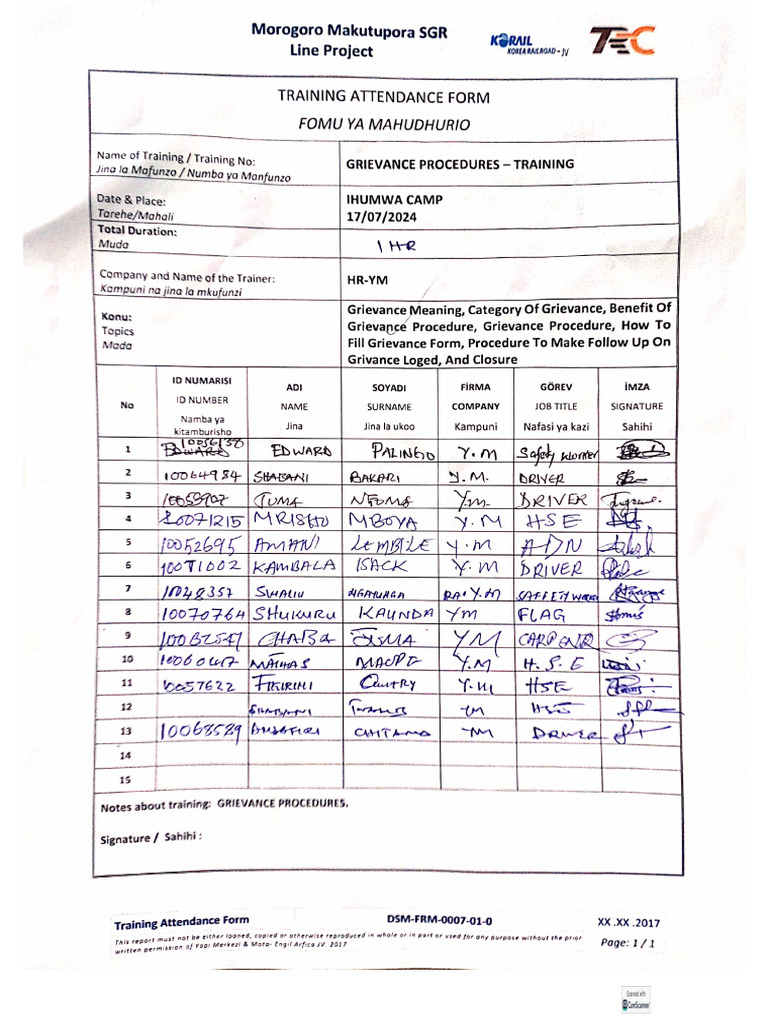 Morogoro Makutupora SGR
Line Project
KORAIL
KOREA RAILROAD - JV
TEC
TRAINING ATTENDANCE FORM
FOMU YA MAHUDHURIO
Name of Training / Training No:
Jina la Mafunzo / Numba ya Manfunzo
GRIEVANCE PROCEDURES – TRAINING
Date & Place:
Tarehe/Mahali
IHUMWA CAMP
17/07/2024
Total Duration:
Muda
1 HR
Company and Name of the Trainer:
Kampuni na jina la mkufunzi
HR-YM
Konu:
Topics
Mada
Grievance Meaning, Category Of Grievance, Benefit Of
Grievance Procedure, Grievance Procedure, How To
Fill Grievance Form, Procedure To Make Follow Up On
Grivance Loged, And Closure
No
ID NUMARISI
ID NUMBER
Namba ya
kitamburisho
ADI
NAME
Jina
SOYADI
SURNAME
Jina la ukoo
FİRMA
COMPANY
Kampuni
GÖREV
JOB TITLE
Nafasi ya kazi
İMZA
SIGNATURE
Sahihi
1 10056138 EDWARD PALINGO Y.M Safety Worker
2 10064984 SHABANI BAKARI Y.M. DRIVER
3 10053907 JUMA Ym DRIVER
4 MRISHO MBOYA Y.M HSE
5 10052695 AMANI LEMBILE Y.M
6 KAMBALA ISACK Y.M DRIVER
7 10048357 Y.M
8 10070764 SHUKURU KAUNDA YM FLAG
9 JUMA YM
10 Y.M H.S.E
11 FIKIRINI Y.M HSE
12 SHABANI YM HSE
13 10068589 CHITAMO YM DRIVER
14
15
Notes about training: GRIEVANCE PROCEDURES.
Signature / Sahihi :
Training Attendance Form
DSM-FRM-0007-01-0
XX .XX .2017
This report must not be either loaned, copied or otherwise reproduced in whole or in part or used for any purpose without the prior
written permission of Yapi Merkezi & Mota- Engil Arfica JV. 2017
Page: 1 / 1
Scanned with
CamScanner